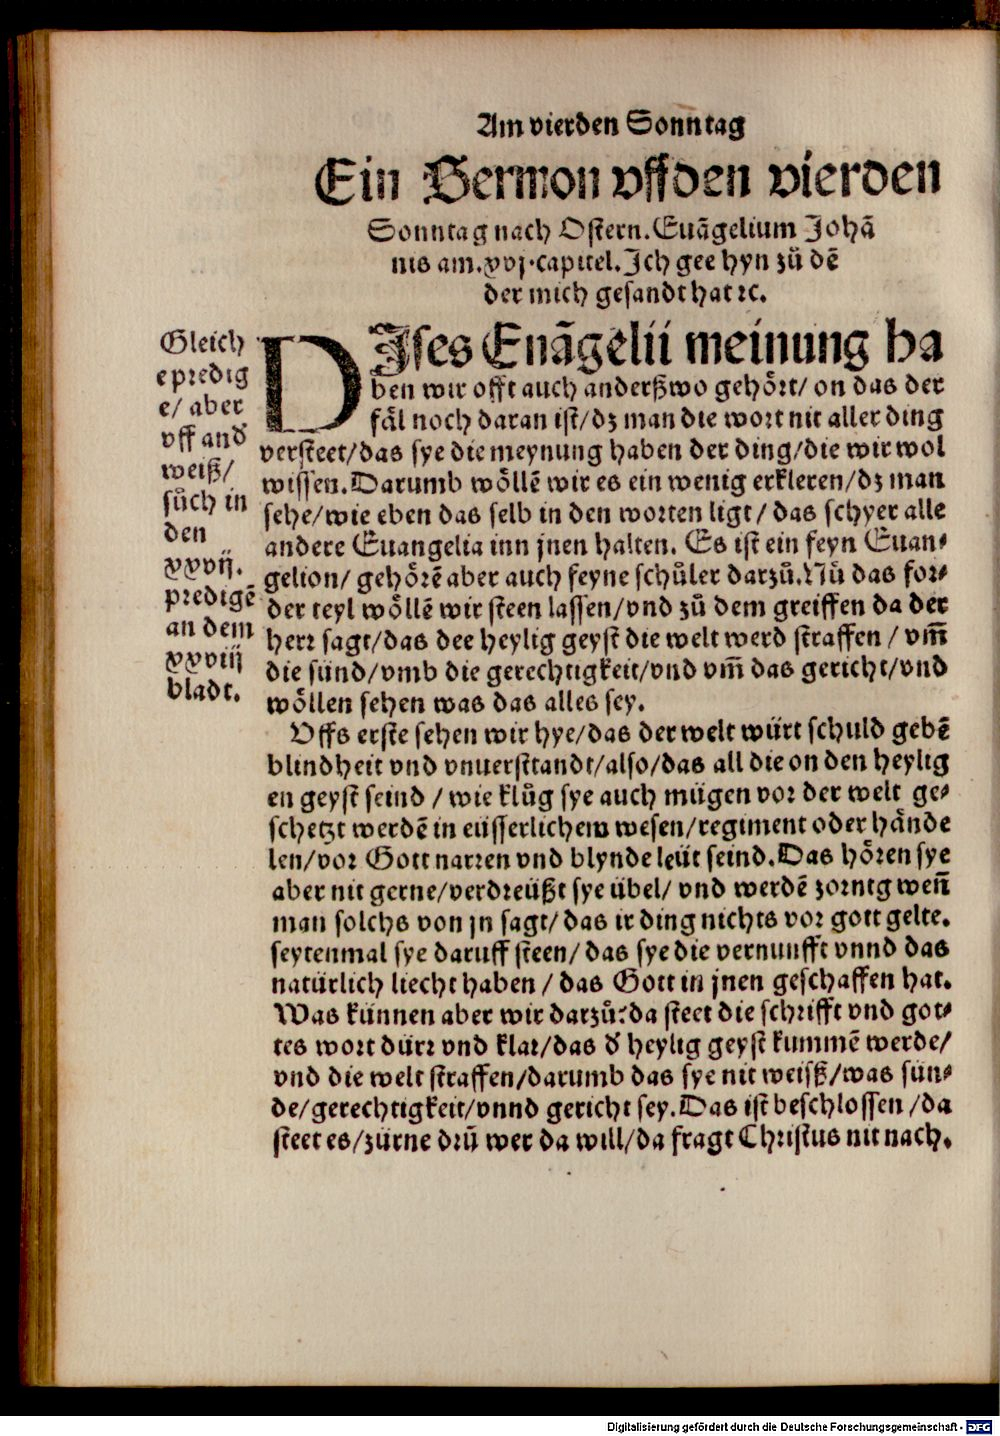 Am vierden Sonntag
Ein Sermon vff den vierden
Sonntag nach Ostern. Euãgelium Johã
nis am. xvj. capitel. Ich gee hyn zů dẽ
der mich gesandt hat ꝛc.
Gleich
e predig
e/ aber
vff and̕
weiß/
sůch in
den
xxvij.
predigẽ
an dem
xxviij
bladt.
DIses Euãgelii meinung ha
ben wir offt auch anderßwo gehört/ on das der
fål noch daran ist/ dz man die wort nit aller ding
versteet/ das sye die meynung haben der ding/ die wir wol
wissen. Darumb wöllẽ wir es ein wenig erkleren/ dz man
sehe/ wie eben das selb in den worten ligt/ das schyer alle
andere Euangelia inn jnen halten. Es ist ein feyn Euan-
gelion/ gehörẽ aber auch feyne schůler darzů. Nů das for-
der teyl wöllẽ wir steen lassen/ vnd zů dem greiffen da der
herr sagt/ das dee heylig geyst die welt werd straffen/ vm̃
die sünd/ vmb die gerechtigkeit/ vnd vm̃ das gericht/ vnd
wöllen sehen was das alles sey.
Vffs erste sehen wir hye/ das der welt würt schuld gebẽ
blindheit vnd vnuersttandt/ also/ das all die on den heylig
en geyst seind/ wie klůg sye auch mügen vor der welt ge-
schetzt werdẽ in eüsserlichem wesen/ regiment oder hånde
len/ vor Gott narren vnd blynde leüt seind. Das hören sye
aber nit gerne/ verdreüßt sye übel/ vnd werdẽ zornig weñ
man solchs von jn sagt/ das ir ding nichts vor gott gelte.
seytenmal sye daruff steen/ das sye die vernunfft vnnd das
natürlich liecht haben/ das Gott in jnen geschaffen hat.
Was künnen aber wir darzů? da steet die schrifft vnd got-
tes wort dürr vnd klar/ das d̕ heylig geyst kummẽ werde/
vnd die welt straffen/ darumb das sye nit weißt/ was sün-
de/ gerechtigkeit/ vnnd gericht sey. Das ist beschlossen/ da
steet es/ zürne drũ wer da will/ da fragt Christus nit nach.
Digitalisierung gefördert durch die Deutsche Forschungsgemeinschaft - DFG